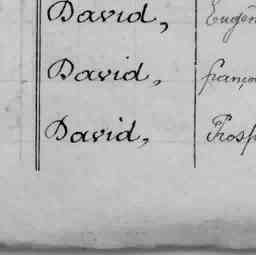 David, Eugèn
David, françoi
David, Prosp